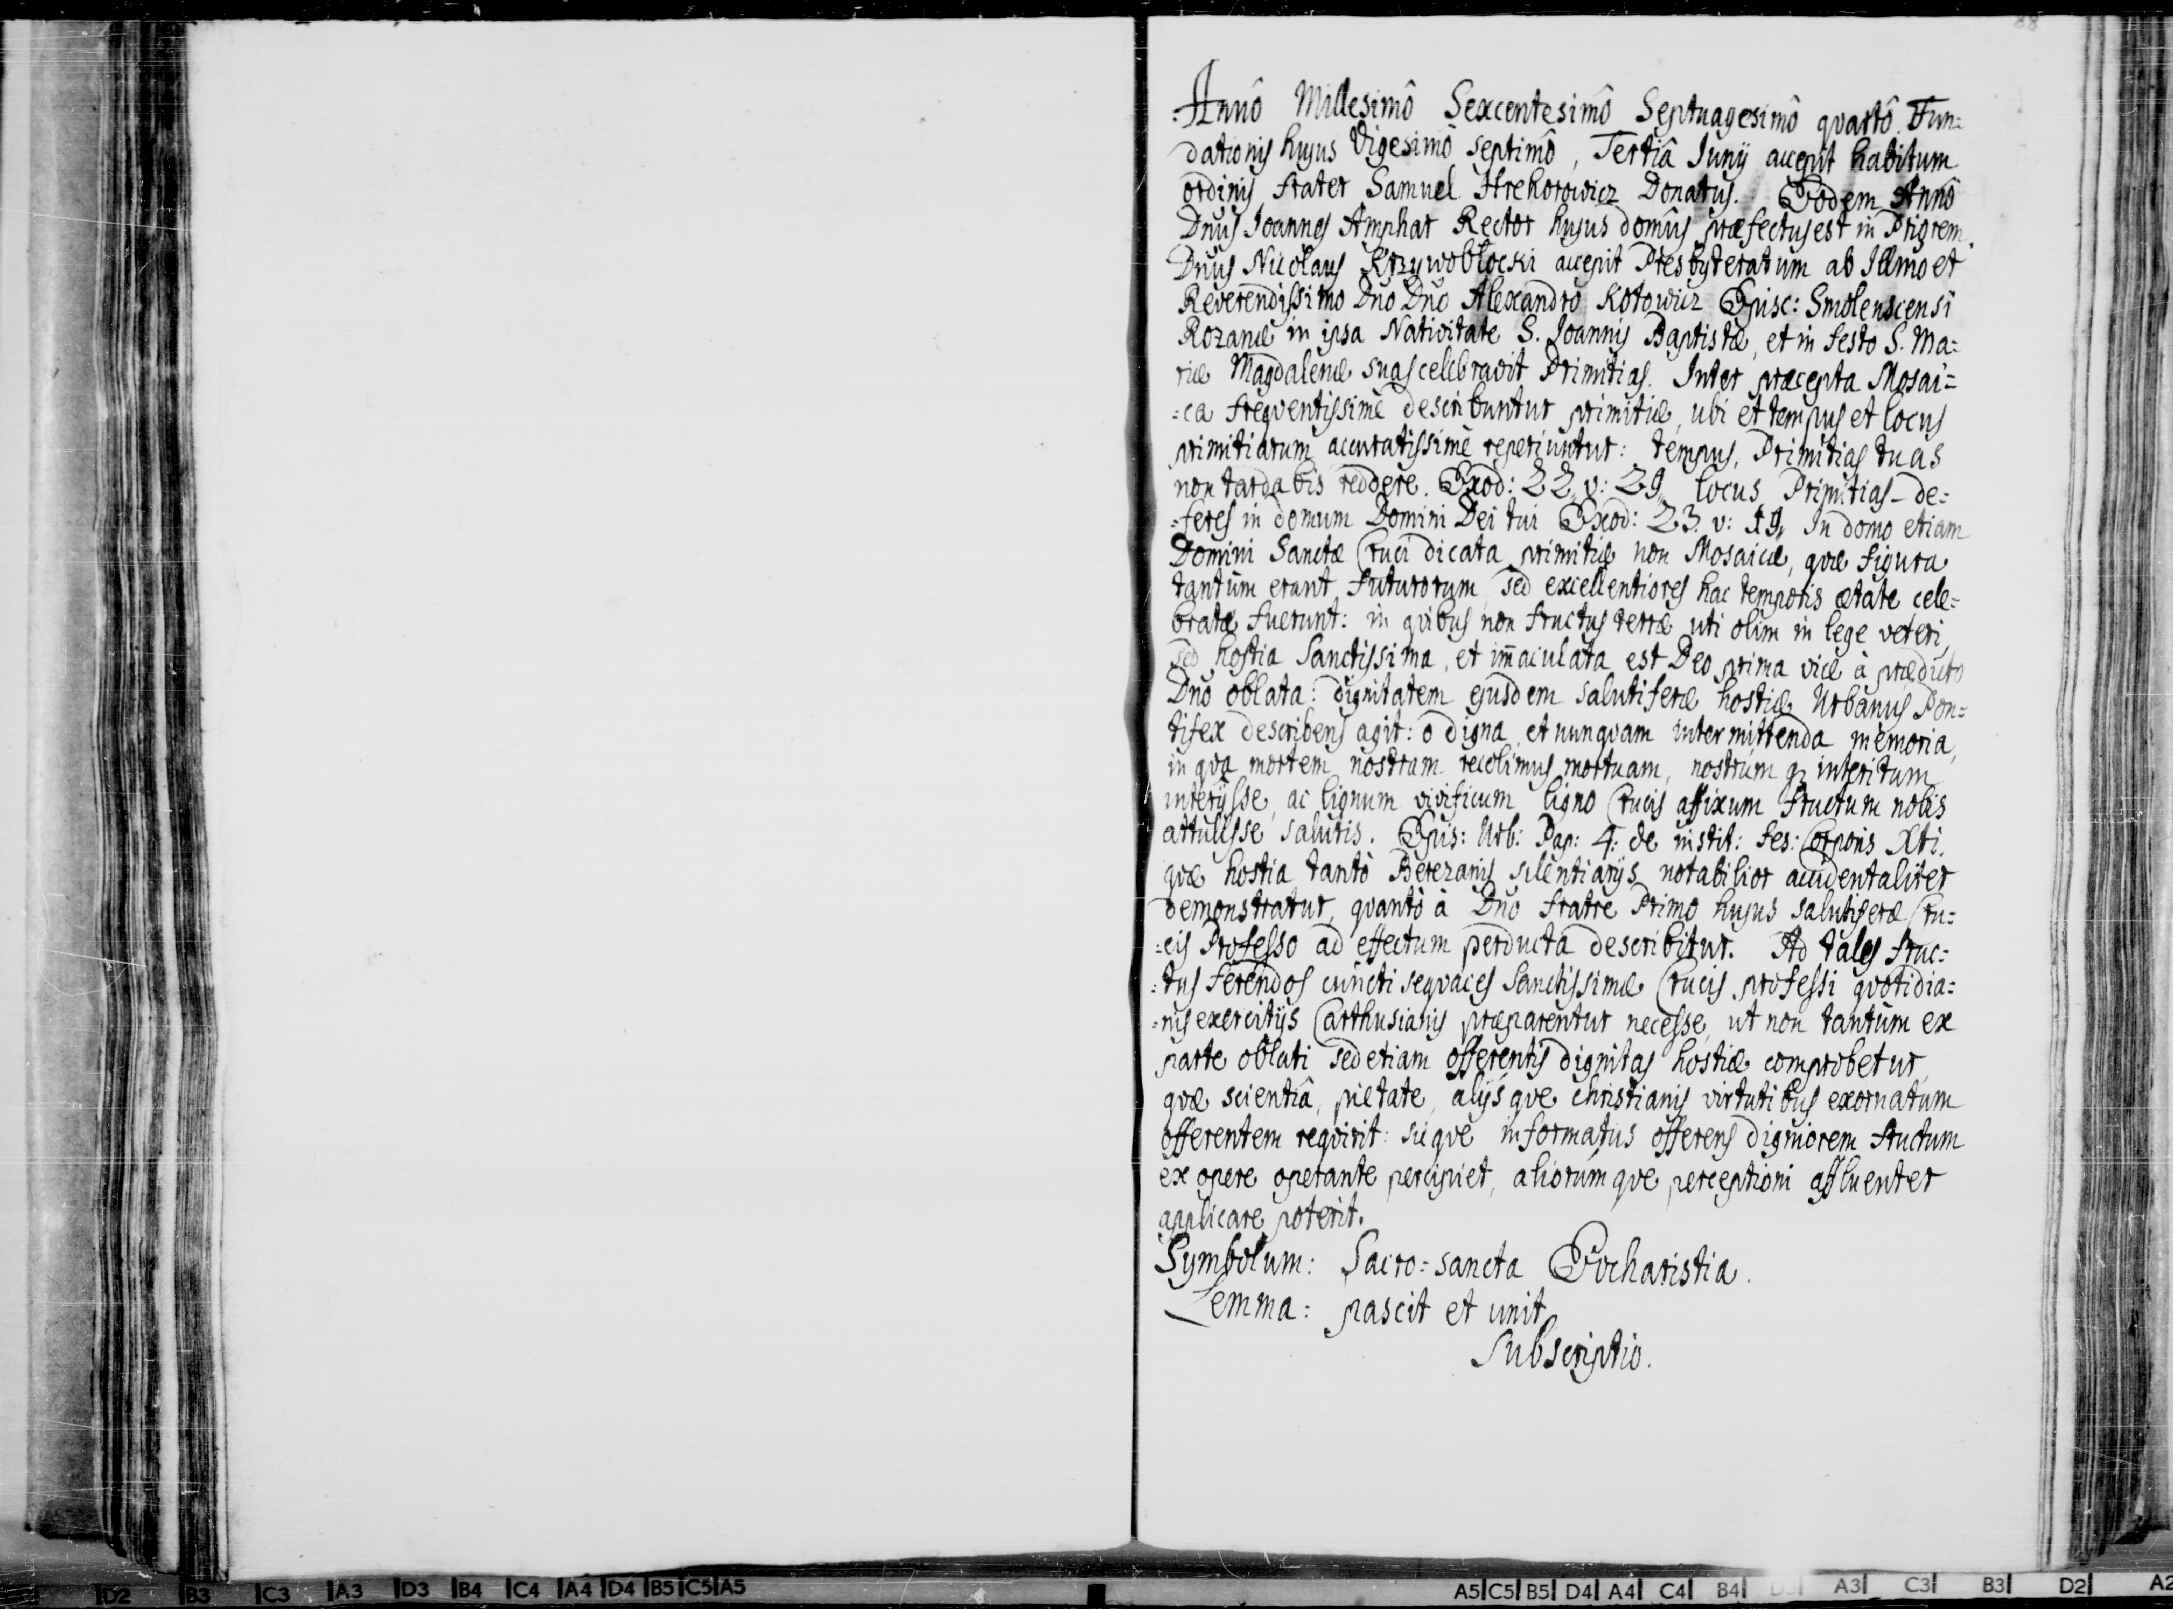 88
Annô Millesimô Sexcentesimô Septuagesimô quartô. Fun:
dationis hujus Vigesimô septimô, Tertiâ Junÿ accepit habitum
ordinis frater Samuel Hrehorowicz Donatus. Eodem Annô
Dnus Joannes Amphar Rector hujus domûs præfectus est in Priorem.
Dnus Nicolaus Krzywobłocki accepit Presbyteratum ab Illmo et
Reverendissimo Dno Dno Alexandro Kotowicz Episc: Smolenscensi
Rozanæ in ipsa Nativitate S. Joannis Baptistæ, et in festo S. Ma:
riæ Magdalenæ suas celebravit Primitias. Inter præcepta Mosai=
=ca freqventissimè describuntur primitiæ, ubi et tempus et locus
primitiarum accuratissimè reperiuntur: tempus, Primitias tuas
non tardabis reddere. Exod: 22. v: 29. locus Primitias de=
=feres in domum Domini Dei tui Exod: 23. v: 19. In domo etiam
Domini Sanctæ Cruci dicata primitiæ non Mosaicæ, quæ figura
tantùm erant futurorum, sed excellentiores hac temporis ætate cele=
bratæ fuerunt: in qvibus non fructus terræ uti olim in lege veteri
sed hostia Sanctissima, et im̃aculata est Deo prima vice à prædicto
Dno oblata: dignitatem ejusdem salutiferæ hostiæ Urbanus Pon=
tifex describens agit: o digna, et nunqvam intermittenda memoria,
in qva mortem nostram recolimus mortuam, nostrum q; interitum
interÿsse, ac lignum vivificum ligno Crucis affixum fructum nobis
attulisse salutis. Epis: Urb: Pap: 4: de instit: fes: Corporis Xti.
qvæ hostia tantò Berezanis silentiarÿs notabilior accidentaliter
demonstratur, quantò à Dno fratre Primo hujus salutiferæ Cru=
=cis Professo ad effectum perducta describitur. Ad tales fruc=
=tus ferendos cuncti seqvaces Sanctissimæ Crucis professi qvotidia=
=nis exercitÿs Carthusianis præparentur necesse, ut non tantùm ex
parte oblati sed etiam offerentis dignitas hostiæ comprobetur,
qvæ scientiâ, pietate, alÿsqve christianis virtutibus exornatum
offerentem reqvirit: sicqve informatus offerens digniorem fructum
ex opere operante percipiet, aliorúmqve perceptioni affluenter
applicare poterit.
Symbolum: Sacro=sancta Eucharistia.
Lemma: pascit et unit
Subscriptio.
D2 B3 C3 A3 D3 B4 C4 A4 D4 B5 C5 A5 A5 C5 B5 D4 A4 C4 B4 D3 A3 C3 B3 D2 A2